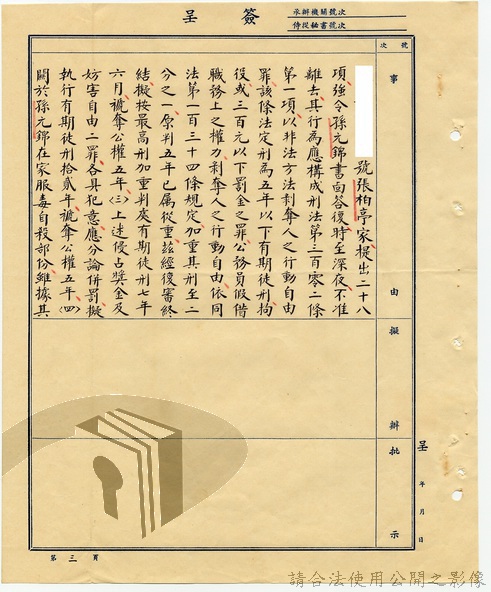 簽呈
承辦機關號次
侍從秘書號次
號次
事由
擬辦
批示
呈 年 月 日
號張柏亭家提出二十八
項強令孫元錦書面答復時至深夜不准
離去其行為應構成刑法第三百零二條
第一項以非法方法剝奪人之行動自由
罪該條法定刑為五年以下有期徒刑拘
役或三百元以下罰金之罪公務員假借
職務上之權力剝奪人之行動自由依同
法第一百三十四條規定加重其刑至二
分之一原判五年已属從重茲經復審終
結擬按最高刑加重判處有期徒刑七年
六月褫奪公權五年(三)上述侵占獎金及
妨害自由二罪各具犯意應分論併罰擬
執行有期徒刑拾貳年褫奪公權五年(四)
關於孫元錦在家服毒自殺部份雖據其
第三頁
請合法使用公開之影像